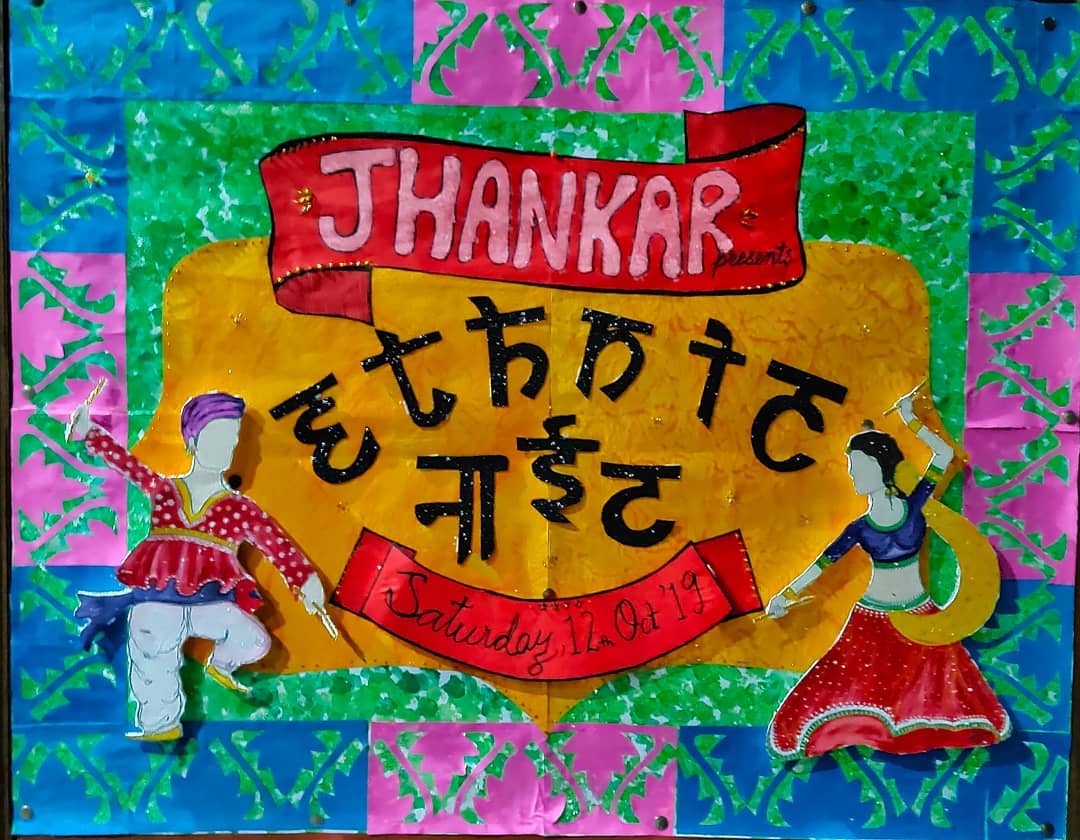 JHANKAR
presents
ethnic
नाईट
Saturday, 12th Oct '19